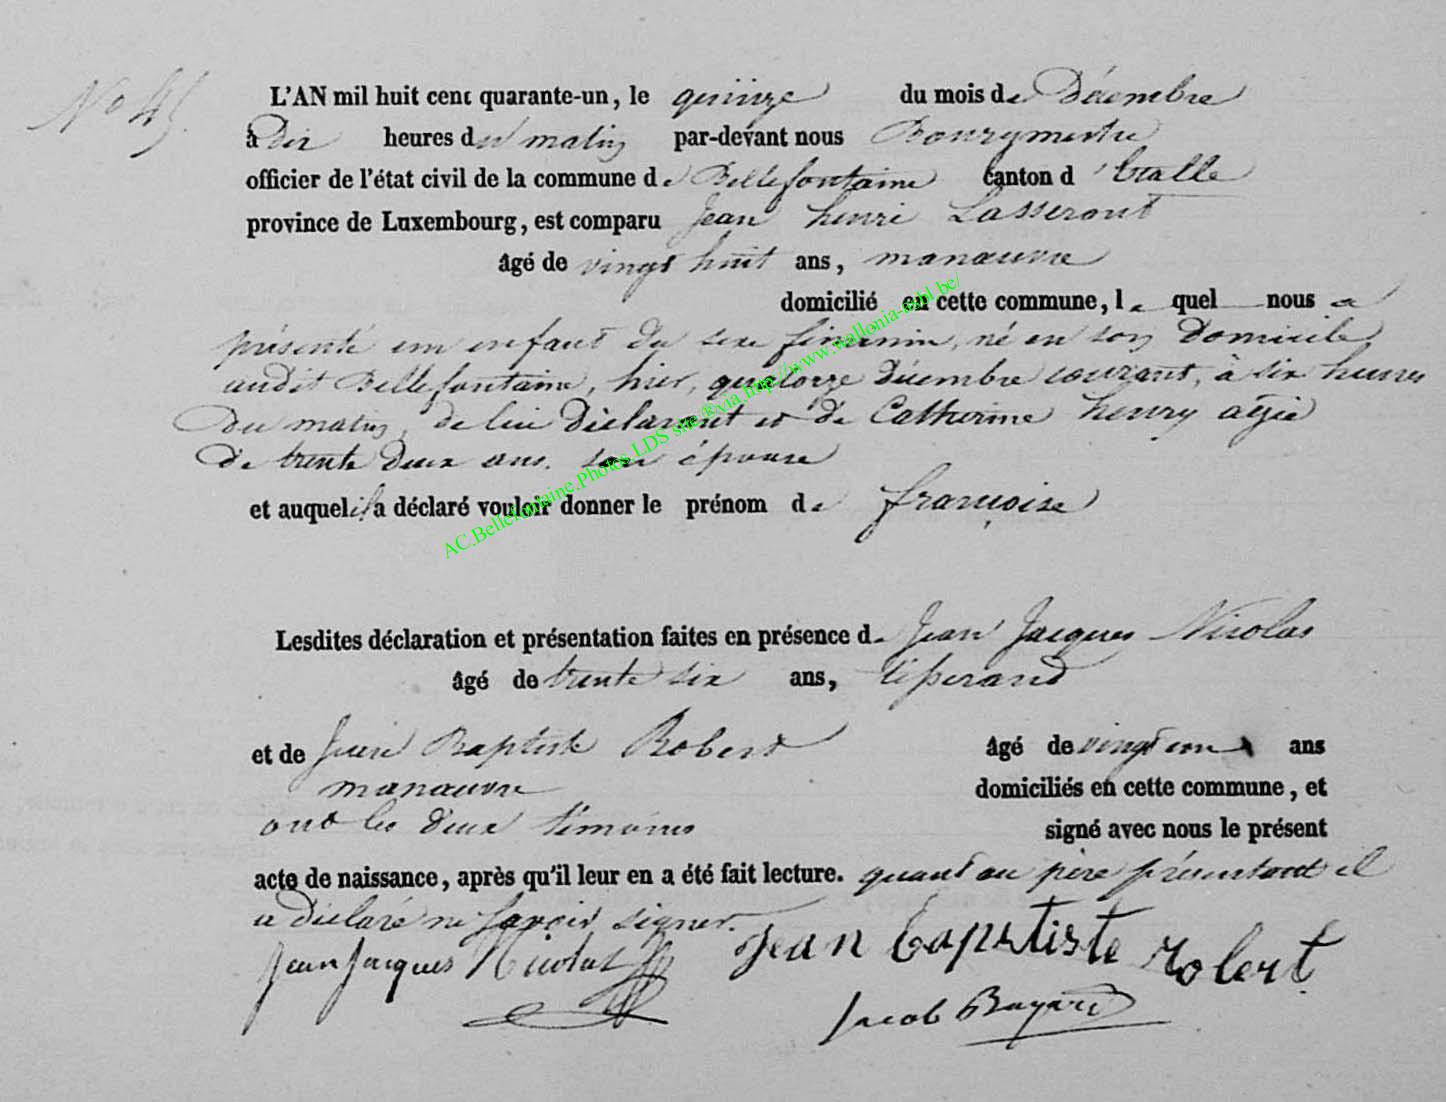 No 45.
L'AN mil huit cent quarante-un, le quinze du mois de Décembre
à Dix heures du matin par-devant nous Bourgmestre
officier de l'état civil de la commune de Bellefontaine canton d'Etalle
province de Luxembourg, est comparu Jean henri Lasseront
âgé de vingt huit ans, manœuvre
domicilié en cette commune, le quel nous a
présenté un enfant du sexe feminin, né en son Domicile
audit Bellefontaine, hier, quatorze décembre courant, à six heures
Du matin, de lui Déclarant et de Catherine henry agée
De trente Deux ans. son épouse
et auquel il a déclaré vouloir donner le prénom de françoise
Lesdites déclaration et présentation faites en présence de Jean Jacques Nicolas
âgé de trente six ans, tisserand
et de Jean Baptiste Robert âgé de vingt un ans
manœuvre domiciliés en cette commune, et
ont les deux témoins signé avec nous le présent
acte de naissance, après qu'il leur en a été fait lecture. quant au père présentant il
a déclaré ne savoir signer.
Jean Jacques Nicolas Jean baptiste robert
Jacob Bayard
AC.Bellefontaine.Photos.LDS site.®via.http://www.wallonia-asbl.be/